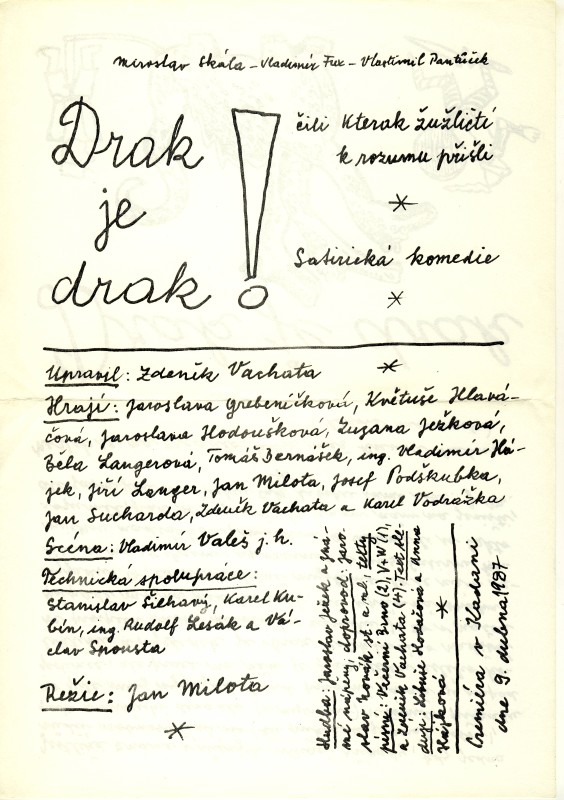 Miroslav Skála - Vladimír Fux - Vlastimil Pantůček
Drak
je
drak
!
čili Kterak žužličtí
k rozumu přišli
Satirická komedie
Upravil: Zdeněk Vachata
Hrají: Jaroslava Grebeníčková, Květuše Hlavá-
čová, Jaroslava Hodoušková, Zuzana Ježková,
Běla Langerová, Tomáš Bernášek, ing. Vladimír Há-
jek, Jiří Langer, Jan Milota, Josef Podškubka,
Jan Sucharda, Zdeněk Vachata a Karel Vodrážka
Scéna: Vladimír Valeš j. h.
Technická spolupráce:
Stanislav Šlehavý, Karel Ku-
bín, ing. Rudolf Lesák a Vá-
clav Spousta
Režie: Jan Milota
Hudba: Jaroslav Ježek a zná-
mé nápěvy, doprovod: Jaro-
slav Novák st. a ml., texty
písní: Večerní Brno (2), V+W (1),
a Zdeněk Vachata (4). Text sle-
dují: Libuše Kodičová a Anna
Hájková
Premiéra v Kladrani
dne 9. dubna 1987